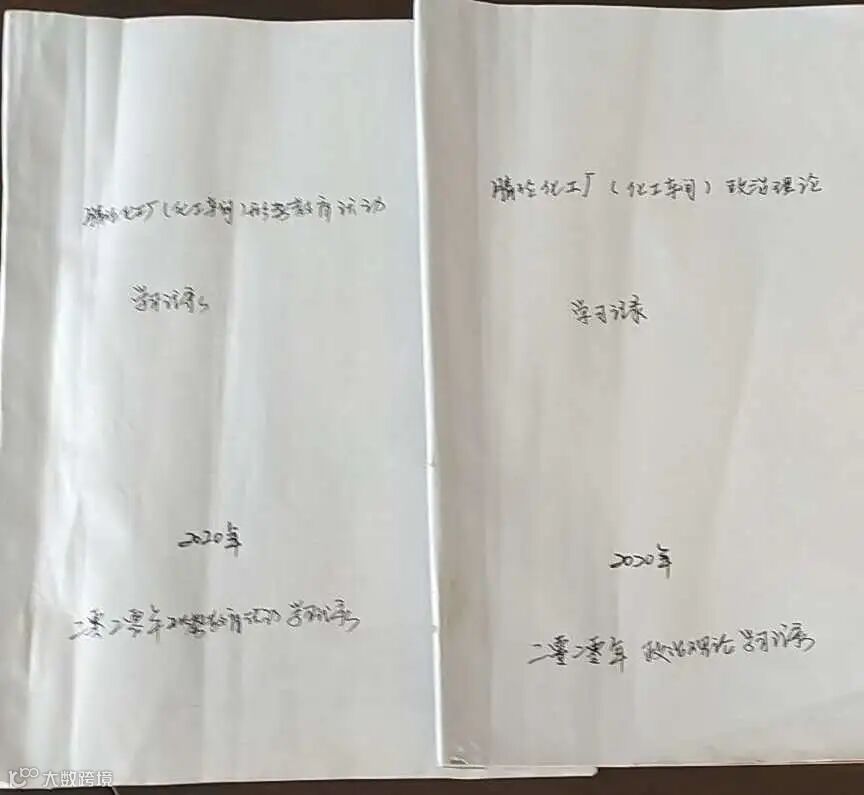 化工厂(化工车间)形势教育活动
学习记录
2020年
二零二零年形势教育活动学习记录
化工厂(化工车间)政治理论
学习记录
2020年
二零二零年 政治理论学习记录
大数跨境